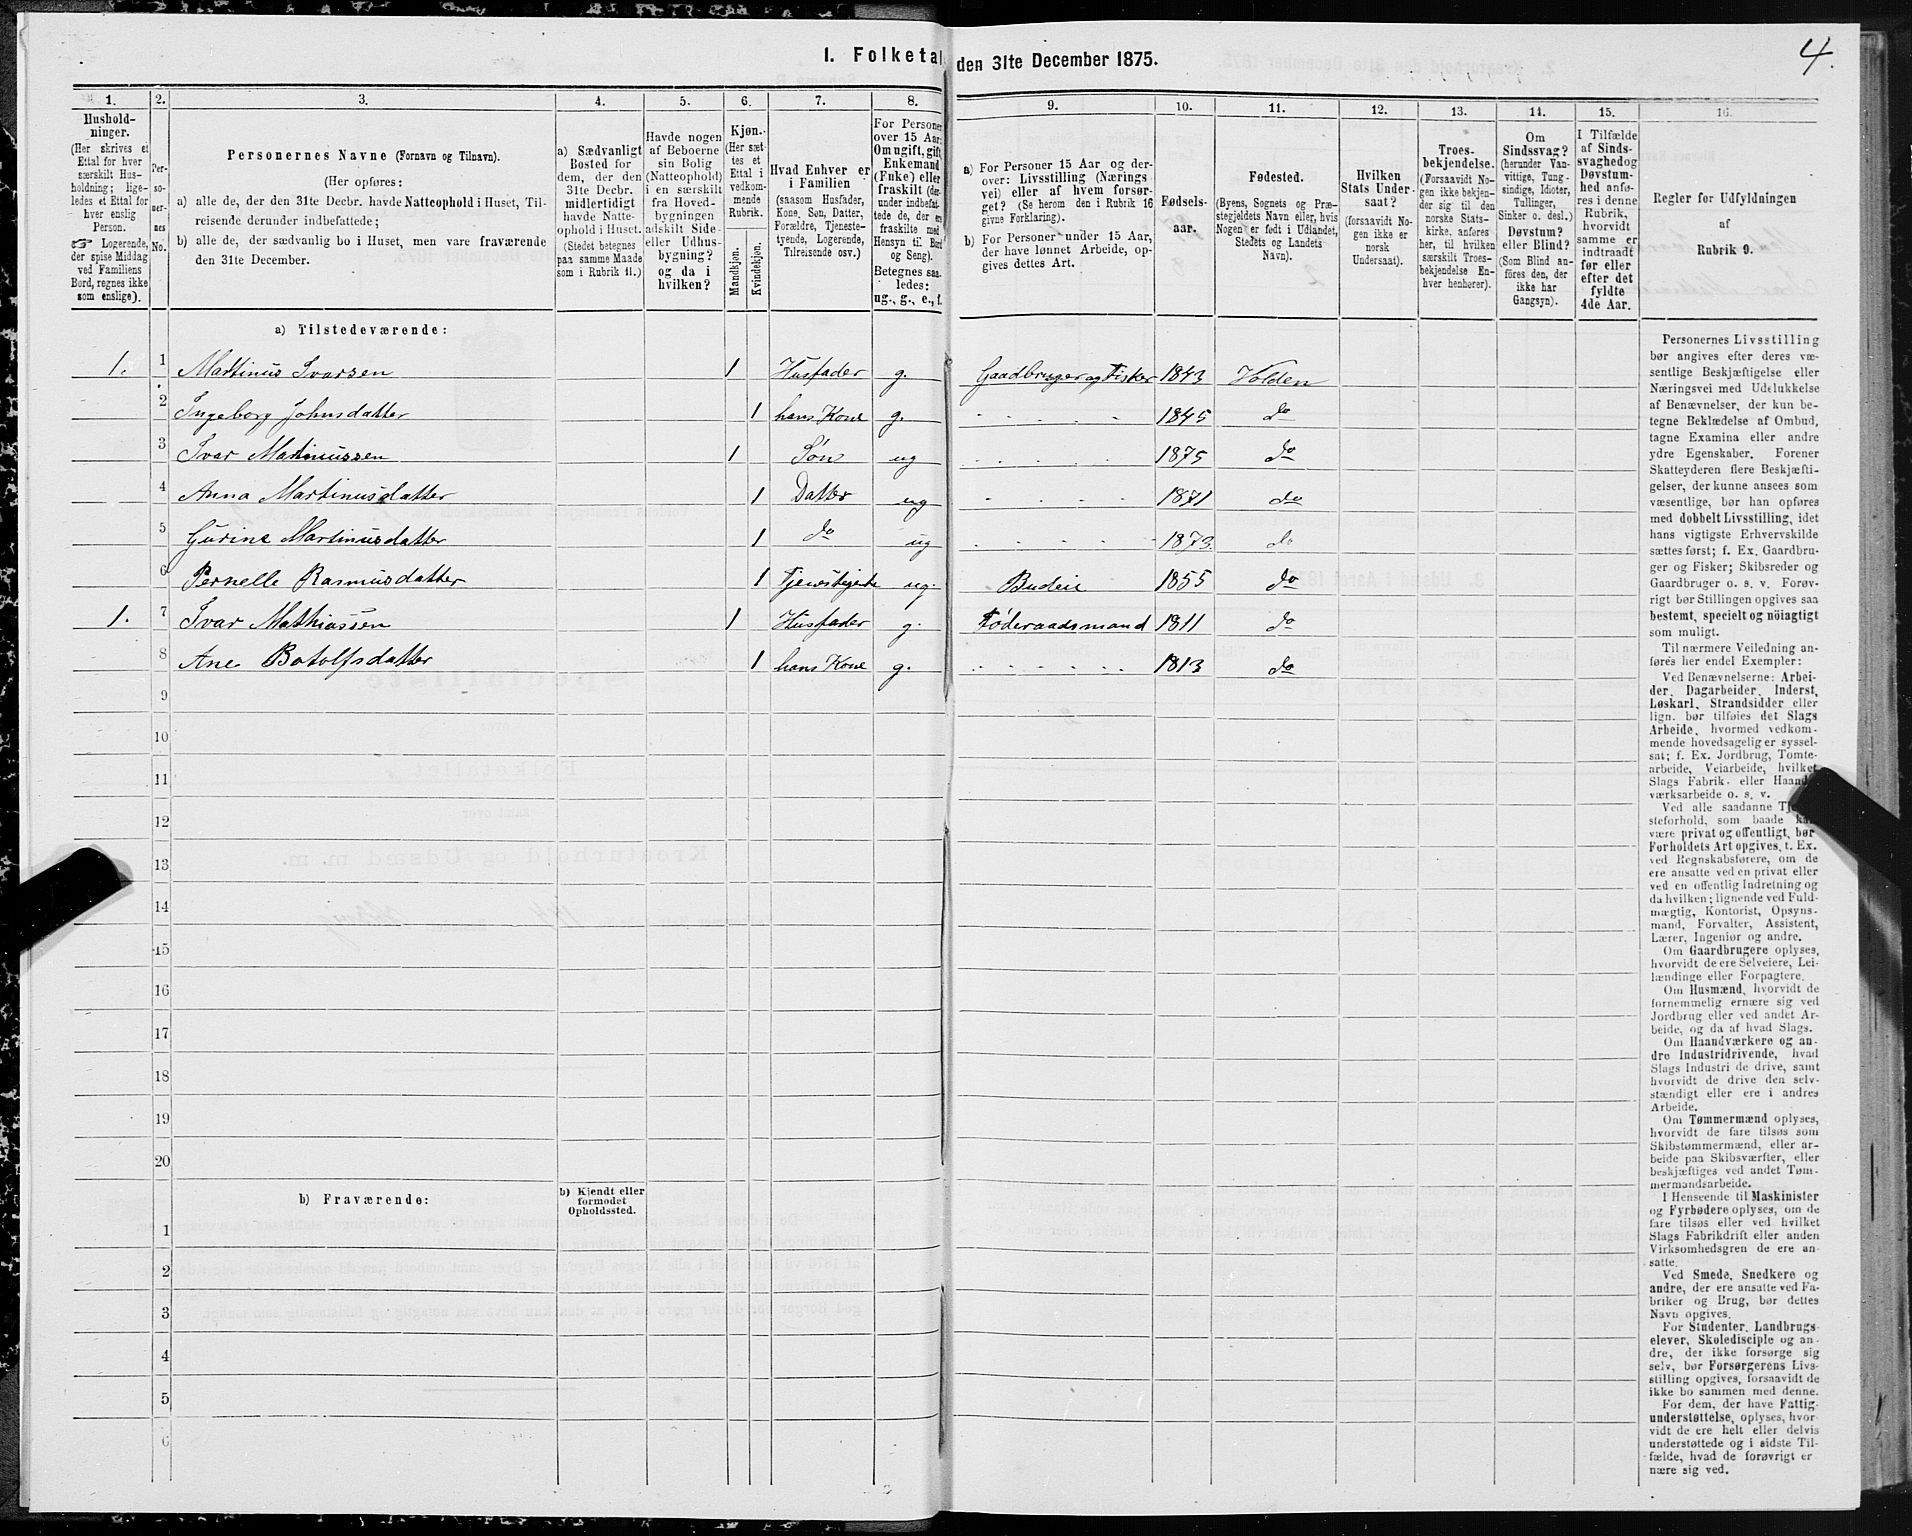 4.
I. Folketal den 31te December 1875.
1. 2. 3. 4. 5. 6. 7. 8. 9. 10. 11. 12. 13. 14. 15. 16.
Hushold-
ninger.
(Her skrives et
Ettal for hver
særskilt Hus-
holdning; lige-
ledes et Ettal for
hver enslig
Person.
☞ Logerende,
der spise Middag
ved Familiens
Bord, regnes ikke
som enslige).
Per-
so-
ner-
nes
No.
Personernes Navne (Fornavn og Tilnavn).
(Her opføres:
a) alle de, der den 31te Decbr. havde Natteophold i Huset, Til-
reisende derunder indbefattede;
b) alle de, der sædvanlig bo i Huset, men vare fraværende
den 31te December.
a) Sædvanligt
Bosted for
dem, der den
31te Decbr.
midlertidigt
havde Natte-
ophold i Huset.
(Stedet betegnes
paa samme Maade
som i Rubrik 11.)
Havde nogen
af Beboerne
sin Bolig
(Natteophold)
i en særskilt
fra Hoved-
bygningen
adskilt Side-
eller Udhus-
bygning?
og da i
hvilken?
Kjøn.
(Her sæt-
tes et
Ettal i
vedkom-
mende
Rubrik.
Mandkjøn.
Kvindekjøn.
Hvad Enhver er
i Familien
(saasom Husfader,
Kone, Søn, Datter,
Forældre, Tjeneste-
tyende, Logerende,
Tilreisende osv.)
For Personer
over 15 Aar:
Om ugift, gift,
Enkemand
(Enke) eller
fraskilt (der-
under indbefat-
tede de, der ere
fraskilte med
Hensyn til Bord
og Seng).
Betegnes saa-
ledes:
ug., g., e., f.
a) For Personer 15 Aar og der-
over: Livsstilling (Nærings-
vei) eller af hvem forsør-
get? (Se herom den i Rubrik 16
givne Forklaring).
b) For Personer under 15 Aar,
der have lønnet Arbeide, op-
gives dettes Art.
Fødsels-
aar.
Fødested.
(Byens, Sognets og Præ-
stegjeldets Navn eller, hvis
Nogen er født i Udlandet,
Stedets og Landets
Navn).
Hvilken
Stats Under-
saat?
(forsaavidt No-
gen ikke er
norsk
Undersaat).
Troes-
bekjendelse.
(Forsaavidt No-
gen ikke bekjen-
der sig til den
norske Stats-
kirke, anføres
her, til hvilken
særskilt Troes-
bekjendelse En-
hver henhører).
Om
Sindssvag?
(herunder Van-
vittige, Tung-
sindige, Idioter,
Tullinger,
Sinker o. desl.)
Døvstum?
eller Blind?
(Som Blind an-
føres den, der
ikke har
Gangsyn).
I Tilfælde
af Sinds-
svaghed og
Døvstum-
hed anfø-
res i denne
Rubrik,
hvorvidt
samme er
indtraadt
før eller
efter det
fyldte
4de Aar.
Regler for Udfyldningen
af
Rubrik 9.
a) Tilstedeværende:
1. 1 Martinus Ivarsen 1 Husfader g. Gaardbruger og Fisker 1843 Holden
2 Ingeborg Johnsdatter 1 hans Kone g. 1845 do
3 Ivar Martinussen 1 Søn ug 1875 do
4 Anna Martinusdatter 1 Datter ug 1871 do
5 Gurine Martinusdatter 1 do ug 1873. do
6 Pernelle Rasmusdatter 1 Tjenestepige ug. Budeie 1855 do
1. 7 Ivar Mathiassen 1 Husfader g. Føderaadsmand 1811 do
8 Ane Botolfsdatter 1 hans Kone g. 1813 do
9
10
11
12
13
14
15
16
17
18
19
20
b) Fraværende:
b) Kjendt eller
formodet
Opholdssted.
1
2
3
4
5
6
Personernes Livsstilling
bør angives efter deres væ-
sentlige Beskjæftigelse eller
Næringsvei med Udelukkelse
af Benævnelser, der kun be-
tegne Beklædelse af Ombud,
tagne Examina eller andre
ydre Egenskaber. Forener
Skatteyderen flere Beskjæfti-
gelser, der kunne ansees som
væsentlige, bør han opføres
med dobbelt Livsstilling, idet
hans vigtigste Erhvervskilde
sættes først; f. Ex. Gaardbru-
ger og Fisker; Skibsreder og
Gaardbruger o. s. v. Forøv-
rigt bør Stillingen opgives saa
bestemt, specielt og nöiagtigt
som muligt.
Til nærmere Veiledning an-
føres her endel Exempler:
Ved Benævnelserne: Arbei-
der, Dagarbeider, Inderst,
Løskarl, Strandsidder eller
lign. bør tilføies det Slags
Arbeide, hvormed vedkom-
mende hovedsagelig er syssel-
sat; f. Ex. Jordbrug, Tomte-
arbeide, Veiarbeide, hvilket
Slags Fabrik- eller Haand-
værksarbeide o. s. v.
Ved alle saadanne Tje-
steforhold, som baade kan
være privat og offentligt, bør
Forholdets Art opgives, t. Ex.
ved Regnskabsførere, om de
ere ansatte ved en privat eller
ved en offentlig Indretning og
da hvilken; lignende ved Fuld-
mægtig, Kontorist, Opsyns-
mand, Forvalter, Assistent,
Lærer, Ingeniør og andre.
Om Gaardbrugere oplyses,
hvorvidt de ere Selveiere, Lei-
lændinge eller Forpagtere.
Om Husmænd, hvorvidt de
fornemmelig ernære sig ved
Jordbrug eller ved andet Ar-
beide, og da af hvad Slags.
Om Haandværkere og an-
dre Industridrivende, hvad
Slags Industri de drive, samt
hvorvidt de drive den selv-
stændigt eller ere i andres
Arbeide.
Om Tømmermænd oplyses,
hvorvidt de fare tilsøs som
Skibstømmermænd, eller ar-
beide paa Skibsværfter, eller
beskjæftiges ved andet Tøm-
mermandsarbeide.
I Henseende til Maskinister
og Fyrbødere oplyses, om de
fare tilsøs eller ved hvilket
Slags Fabrikdrift eller anden
Virksomhedsgren de ere an-
satte.
Ved Smede, Snedkere og
andre, der ere ansatte ved Fa-
briker og Brug, bør dettes
Navn opgives.
For Studenter, Landbrugs-
elever, Skoledisciple og an-
dre, der ikke forsørge sig
selv, bør Forsørgerens Livs-
stilling opgives, forsaavidt de
ikke bo sammen med denne.
For dem, der have Fattig-
understøttelse, oplyses, hvor-
vidt de ere helt eller delvis
understøttede og i sidste Til-
fælde, hvad de forøvrigt er-
nære sig ved.